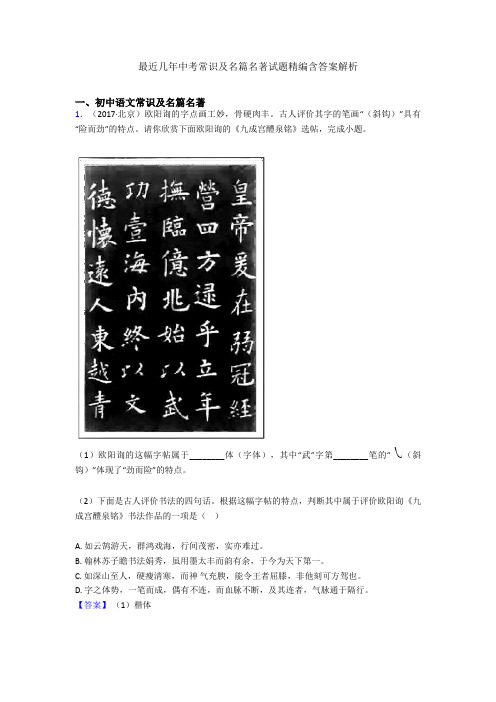 最近几年中考常识及名篇名著试题精编含答案解析
一、初中语文常识及名篇名著
1.（2017·北京）欧阳询的字点画工妙，骨硬肉丰。古人评价其字的笔画“（斜钩）”具有
“险而劲”的特点。请你欣赏下面欧阳询的《九成宫醴泉铭》选帖，完成小题。
皇帝爰在弱冠經
營四方逯乎立年
撫臨億兆始以武
功壹海内終以文
德懷遠人東越青
（1）欧阳询的这幅字帖属于________体（字体），其中“武”字第________笔的“㇂（斜
钩）”体现了“劲而险”的特点。
（2）下面是古人评价书法的四句话。根据这幅字帖的特点，判断其中属于评价欧阳询《九
成宫醴泉铭》书法作品的一项是（　）
A. 如云鹄游天，群鸿戏海，行间茂密，实亦难过。
B. 翰林苏子瞻书法娟秀，虽用墨太丰而韵有余，于今为天下第一。
C. 如深山至人，硬瘦清寒，而神 气充腴，能令王者屈膝，非他刻可方驾也。
D. 字之体势，一笔而成，偶有不连，而血脉不断，及其连者，气脉通于隔行。
【答案】（1）楷体